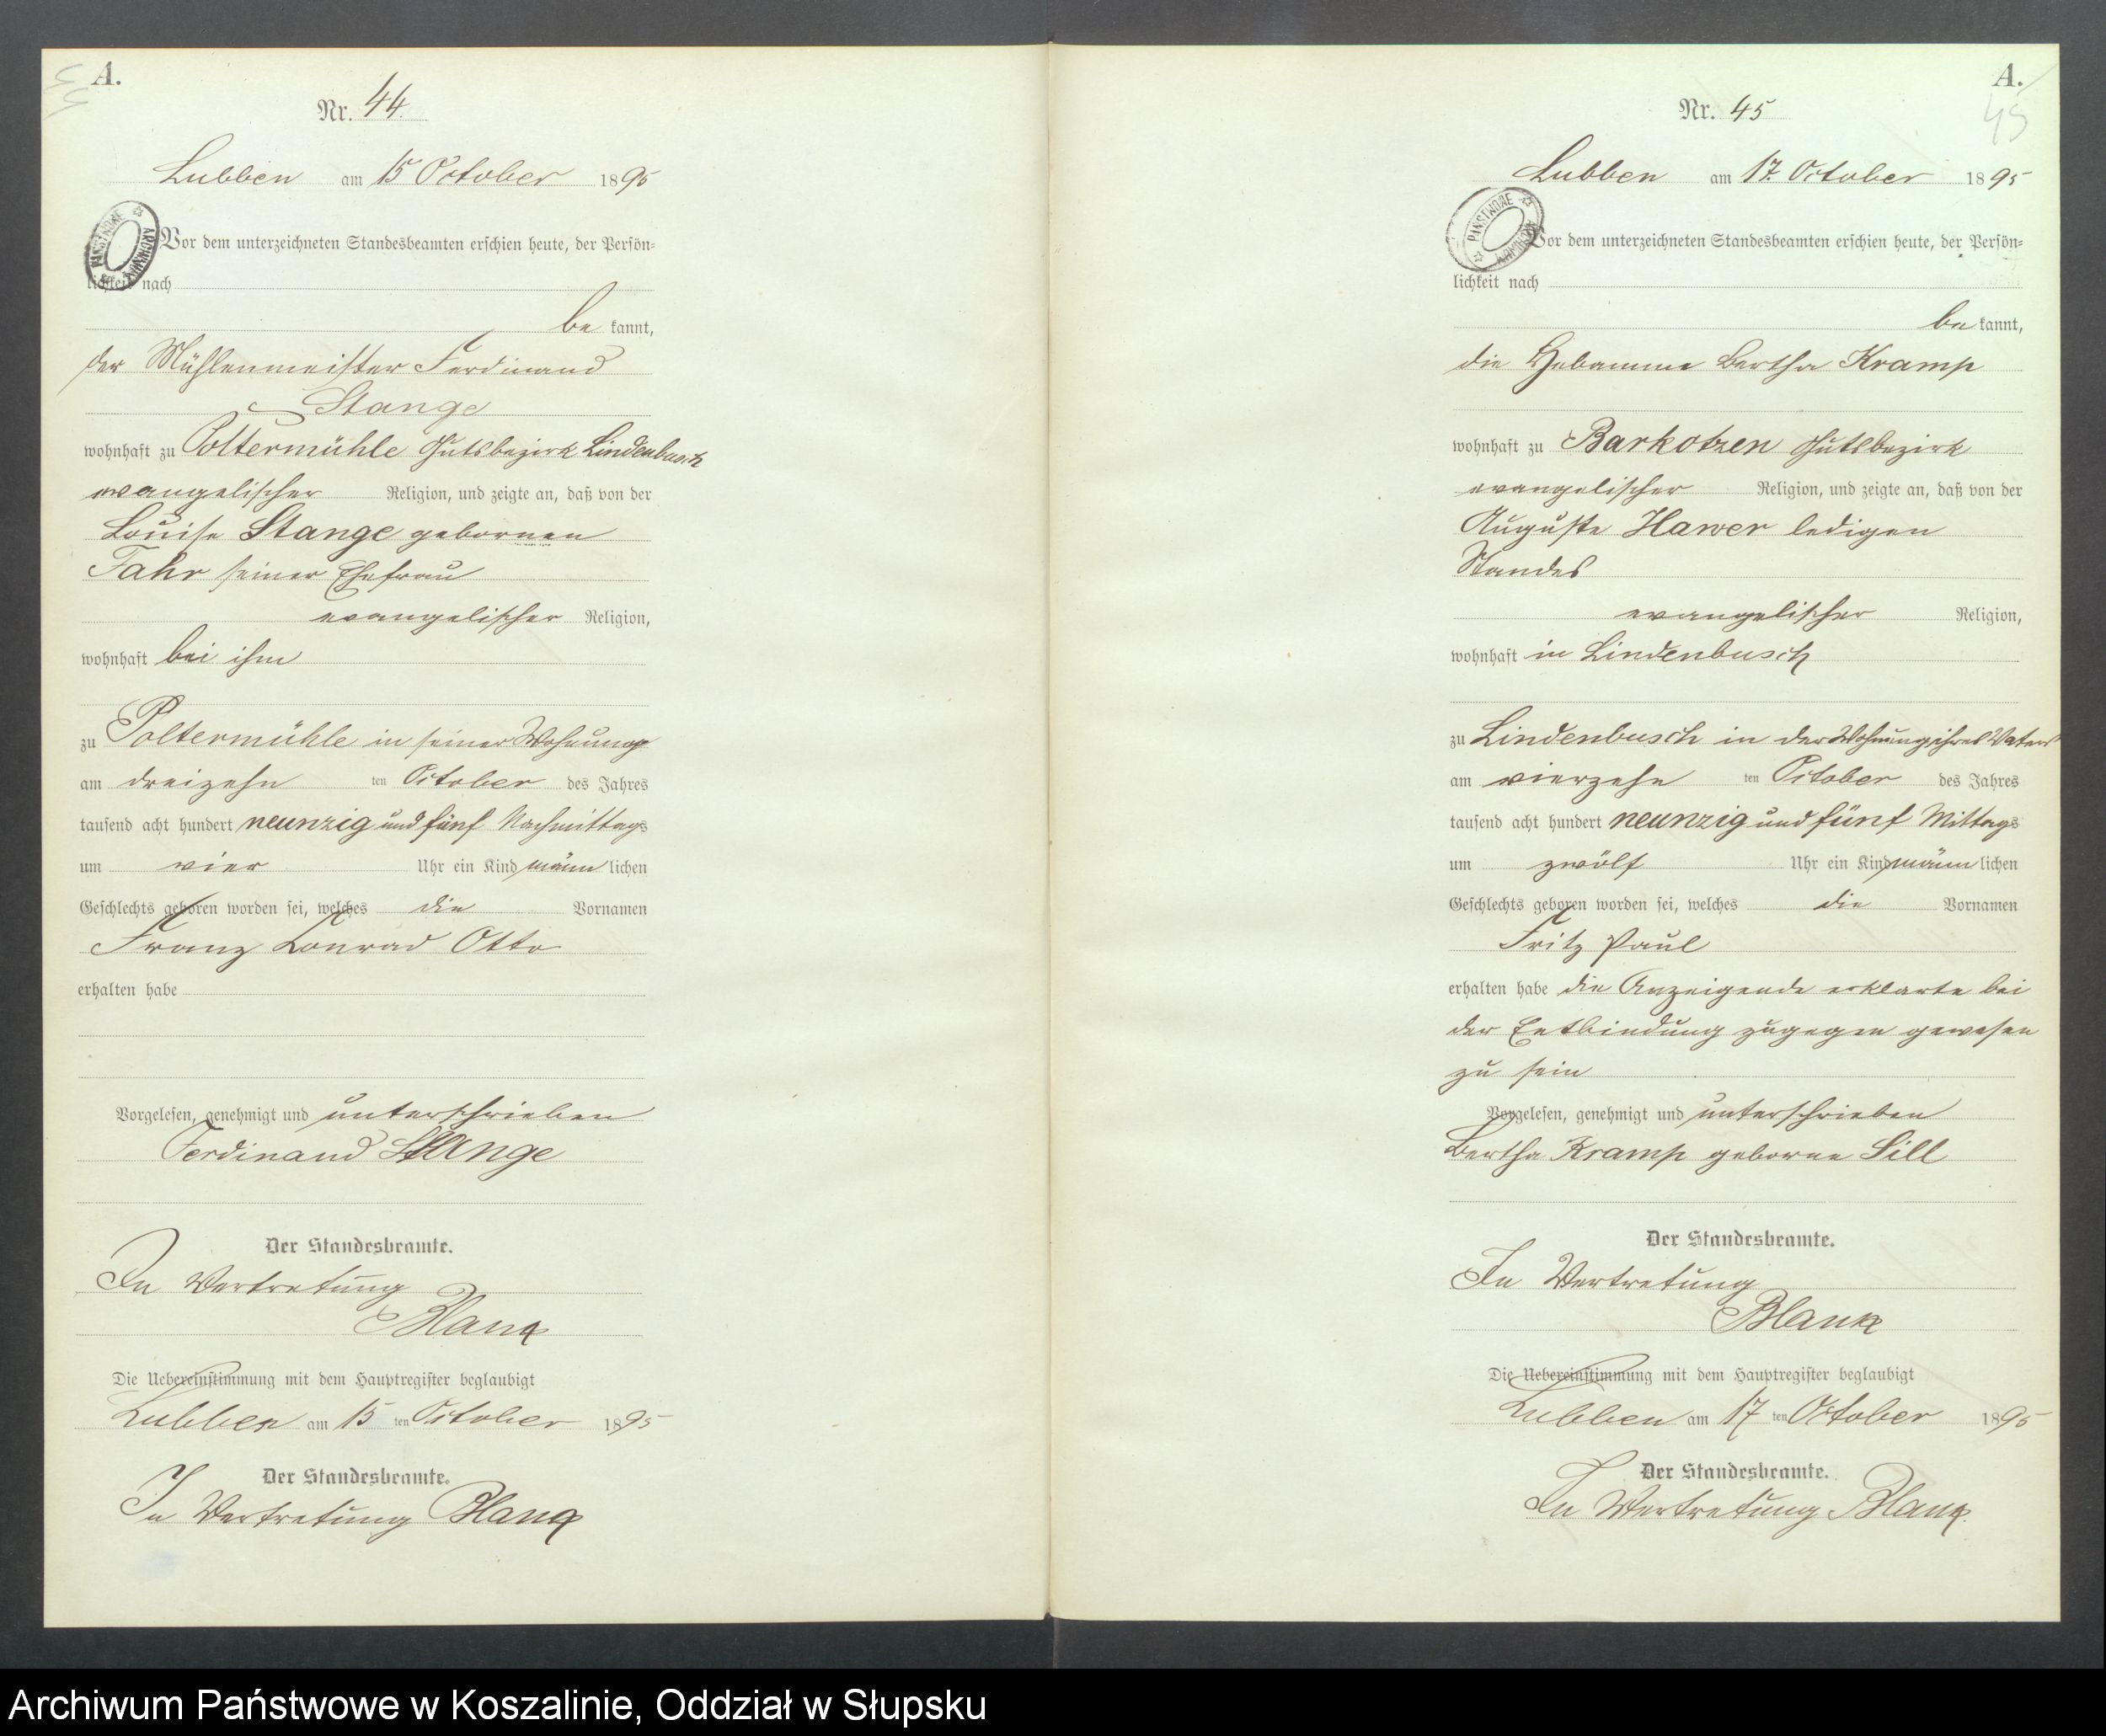 A.
Nr. 44.
Lubben am 15 October 1895
Vor dem unterzeichneten Standesbeamten erschien heute, der Persön=
lichkeit nach
be kannt,
der Mühlenmeister Ferdinand
Stange
wohnhaft zu Poltermühle Gutsbezirk Lindenbusch
evangelischer Religion, und zeigte an, daß von der
Louise Stange gebornen
Fahr seiner Ehefrau
evangelischer Religion,
wohnhaft bei ihm
zu Poltermühle in seiner Wohnung
am dreizehn ten October des Jahres
tausend acht hundert neunzig und fünf Nachmittags
um vier Uhr ein Kind männ lichen
Geschlechts geboren worden sei, welches die Vornamen
Franz Conrad Otto
erhalten habe
Vorgelesen, genehmigt und unterschrieben
Ferdinand Stange
Der Standesbeamte.
In Vertretung
Blank
Die Uebereinstimmung mit dem Hauptregister beglaubigt
Lubben am 15 ten October 1895
Der Standesbeamte.
In Vertretung Blank
A.
45
Nr. 45
Lubben am 17. October 1895
PAŃSTWOWE ARCHIWUM
Vor dem unterzeichneten Standesbeamten erschien heute, der Persön=
lichkeit nach
be kannt,
die Hebamme Bertha Kramp
wohnhaft zu Barkotzen Gutsbezirk
evangelischer Religion, und zeigte an, daß von der
Auguste Hawer ledigen
Standes
evangelischer Religion,
wohnhaft in Lindenbusch
zu Lindenbusch in der Wohnung ihres Vaters
am vierzehn ten October des Jahres
tausend acht hundert neunzig und fünf Mittags
um zwölf Uhr ein Kind männ lichen
Geschlechts geboren worden sei, welches die Vornamen
Fritz Paul
erhalten habe die Anzeigende erklarte bei
der Entbindung zugegen gewesen
zu sein
Vorgelesen, genehmigt und unterschrieben
Bertha Kramp geborne Sill
Der Standesbeamte.
In Vertretung
Blank
Die Uebereinstimmung mit dem Hauptregister beglaubigt
Lubben am 17 ten October 1895
Der Standesbeamte.
In Vertretung Blank
Archiwum Państwowe w Koszalinie, Oddział w Słupsku